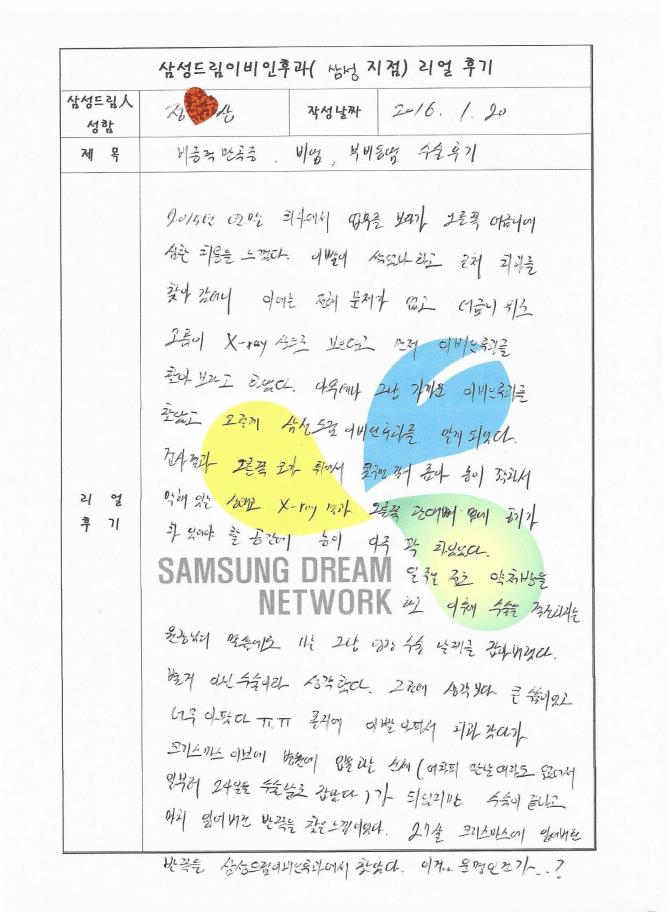 삼성드림이비인후과( 삼성 지점) 리얼 후기
삼성드림人
성함
정 산
작성날짜
2016. 1. 20
제 목
비중격만곡증. 비염, 부비동염 수술후기
2015년 연말 회사에서 업무를 보다가 오른쪽 어금니에
심한 치통을 느꼈다. 이빨이 썩었나 하고 근처 치과를
찾아 갔더니 이에는 전혀 문제가 없고 어금니 위쪽
고름이 X-ray 상으로 보인다고 먼저 이비인후과를
찾아 보라고 하였다. 아무생각 그냥 가까운 이비인후과를
찾았고 그렇게 삼성드림이비인후과를 알게 되었다.
검사결과 오른쪽 코가 휘어서 콧구멍 좁아 농이 차서
막혀 있는 상태고 X-ray 결과 오른쪽 광대뼈 옆에 공기가
차 있어야 할 공간에 농이 아주 꽉 차있었다.
일주일 정도 약처방을
하고 이후에 수술을 결정하자는
SAMSUNG DREAM
NETWORK
원장님의 말씀에도 나는 그냥 덜컥 수술 날짜를 잡아버렸다.
별거 아닌 수술이라 생각했다. 그런데 생각보다 큰 수술이었고
너무 아팠다 ㅠ.ㅠ 졸지에 이빨 아파서 치과 갔다가
크리스마스 이브에 병원에 입원하는 신세 (어차피 만날 여자도 없어서
일부러 24일을 수술날로 잡았다)가 되었지만 수술이 끝나고
마치 잃어버린 반쪽을 찾은 느낌이었다. 27살 크리스마스에 잃어버린
반쪽을 삼성드림이비인후과에서 찾았다. 이거.. 운명인건가...?
리 얼
후 기